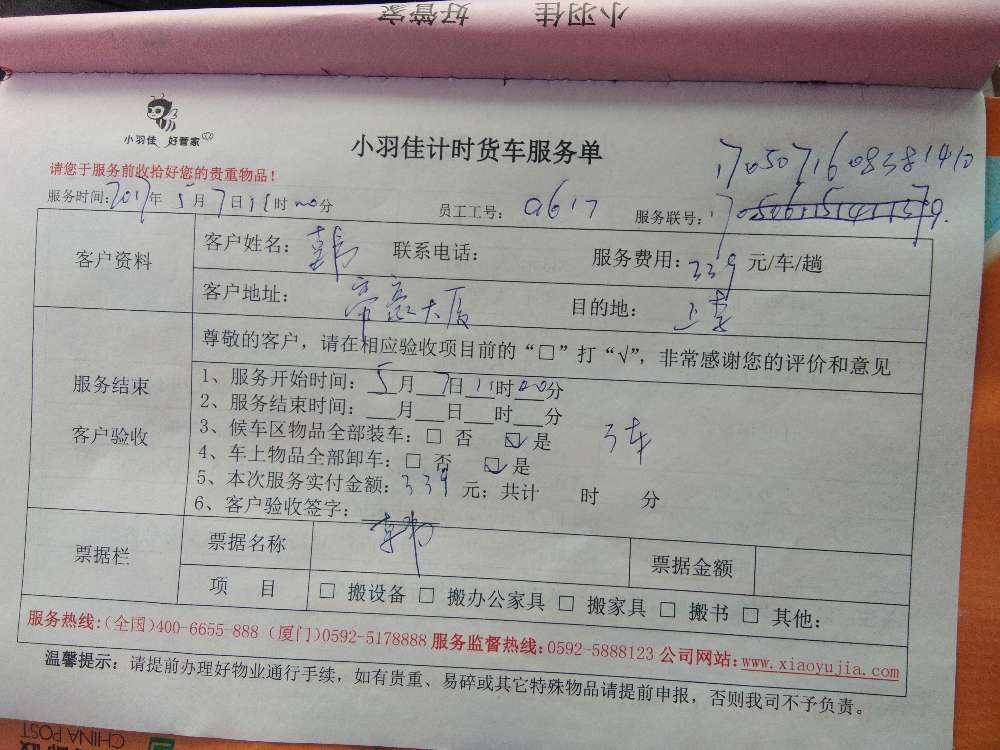 小羽佳 好管家
小羽佳 好管家
小羽佳计时货车服务单
1705071608381410
请您于服务前收拾好您的贵重物品！
服务时间：2017年5月7日11时00分
员工工号：a617
服务联号：
客户资料
客户姓名：韩
联系电话：
服务费用：339元/车/趟
客户地址：帝豪大厦
目的地：
服务结束
客户验收
尊敬的客户，请在相应验收项目前的“□”打“√”，非常感谢您的评价和意见
1、服务开始时间：5月7日11时00分
2、服务结束时间：___月___日___时___分
3、候车区物品全部装车：□ 否 ☑ 是
3车
4、车上物品全部卸车：□ 否 ☑ 是
5、本次服务实付金额：339元；共计 时 分
6、客户验收签字：韩
票据栏
票据名称
票据金额
项 目
□ 搬设备 □ 搬办公家具 □ 搬家具 □ 搬书 □ 其他：
服务热线：(全国)400-6655-888 (厦门)0592-5178888 服务监督热线：0592-5888123 公司网站：www.xiaoyujia.com
温馨提示：请提前办理好物业通行手续，如有贵重、易碎或其它特殊物品请提前申报，否则我司不予负责。
CHINA POST